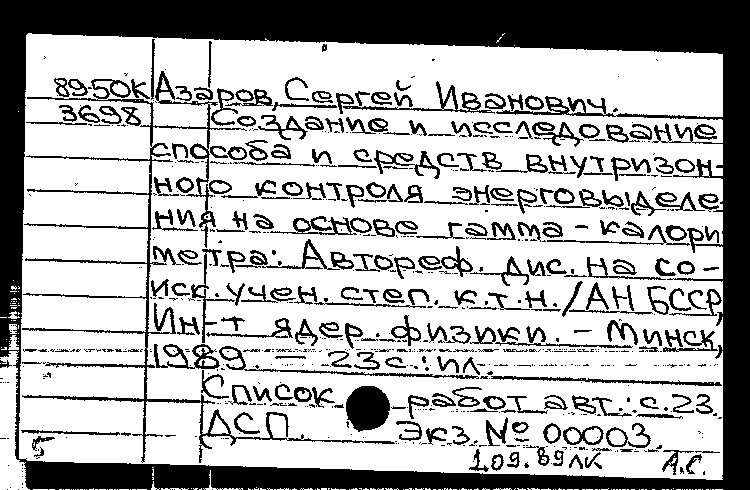 89-50К Азаров, Сергей Иванович.
3698 Создание и исследование
способа и средств внутризон-
ного контроля энерговыделе-
ния на основе гамма-калори
метра: Автореф. дис. на со-
иск. учен. степ. к.т.н./АН БССР,
Ин-т ядер. физики. - Минск,
1989. - 23с.: ил.
Список работ авт.: с.23.
ДСП. Экз. № 00003.
5 1.09.89 ЛК А.С.